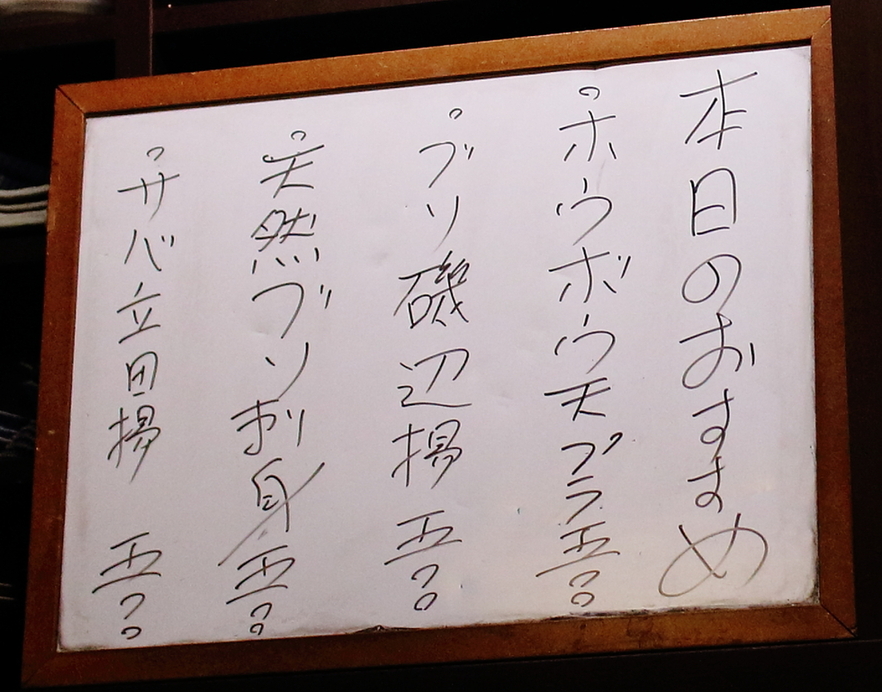 本日のおすすめ
。ホウボウ天プラ 五〇〇
。ブリ磯辺揚 五〇〇
。天然ブリ刺身 五〇〇
。サバ立田揚 五〇〇